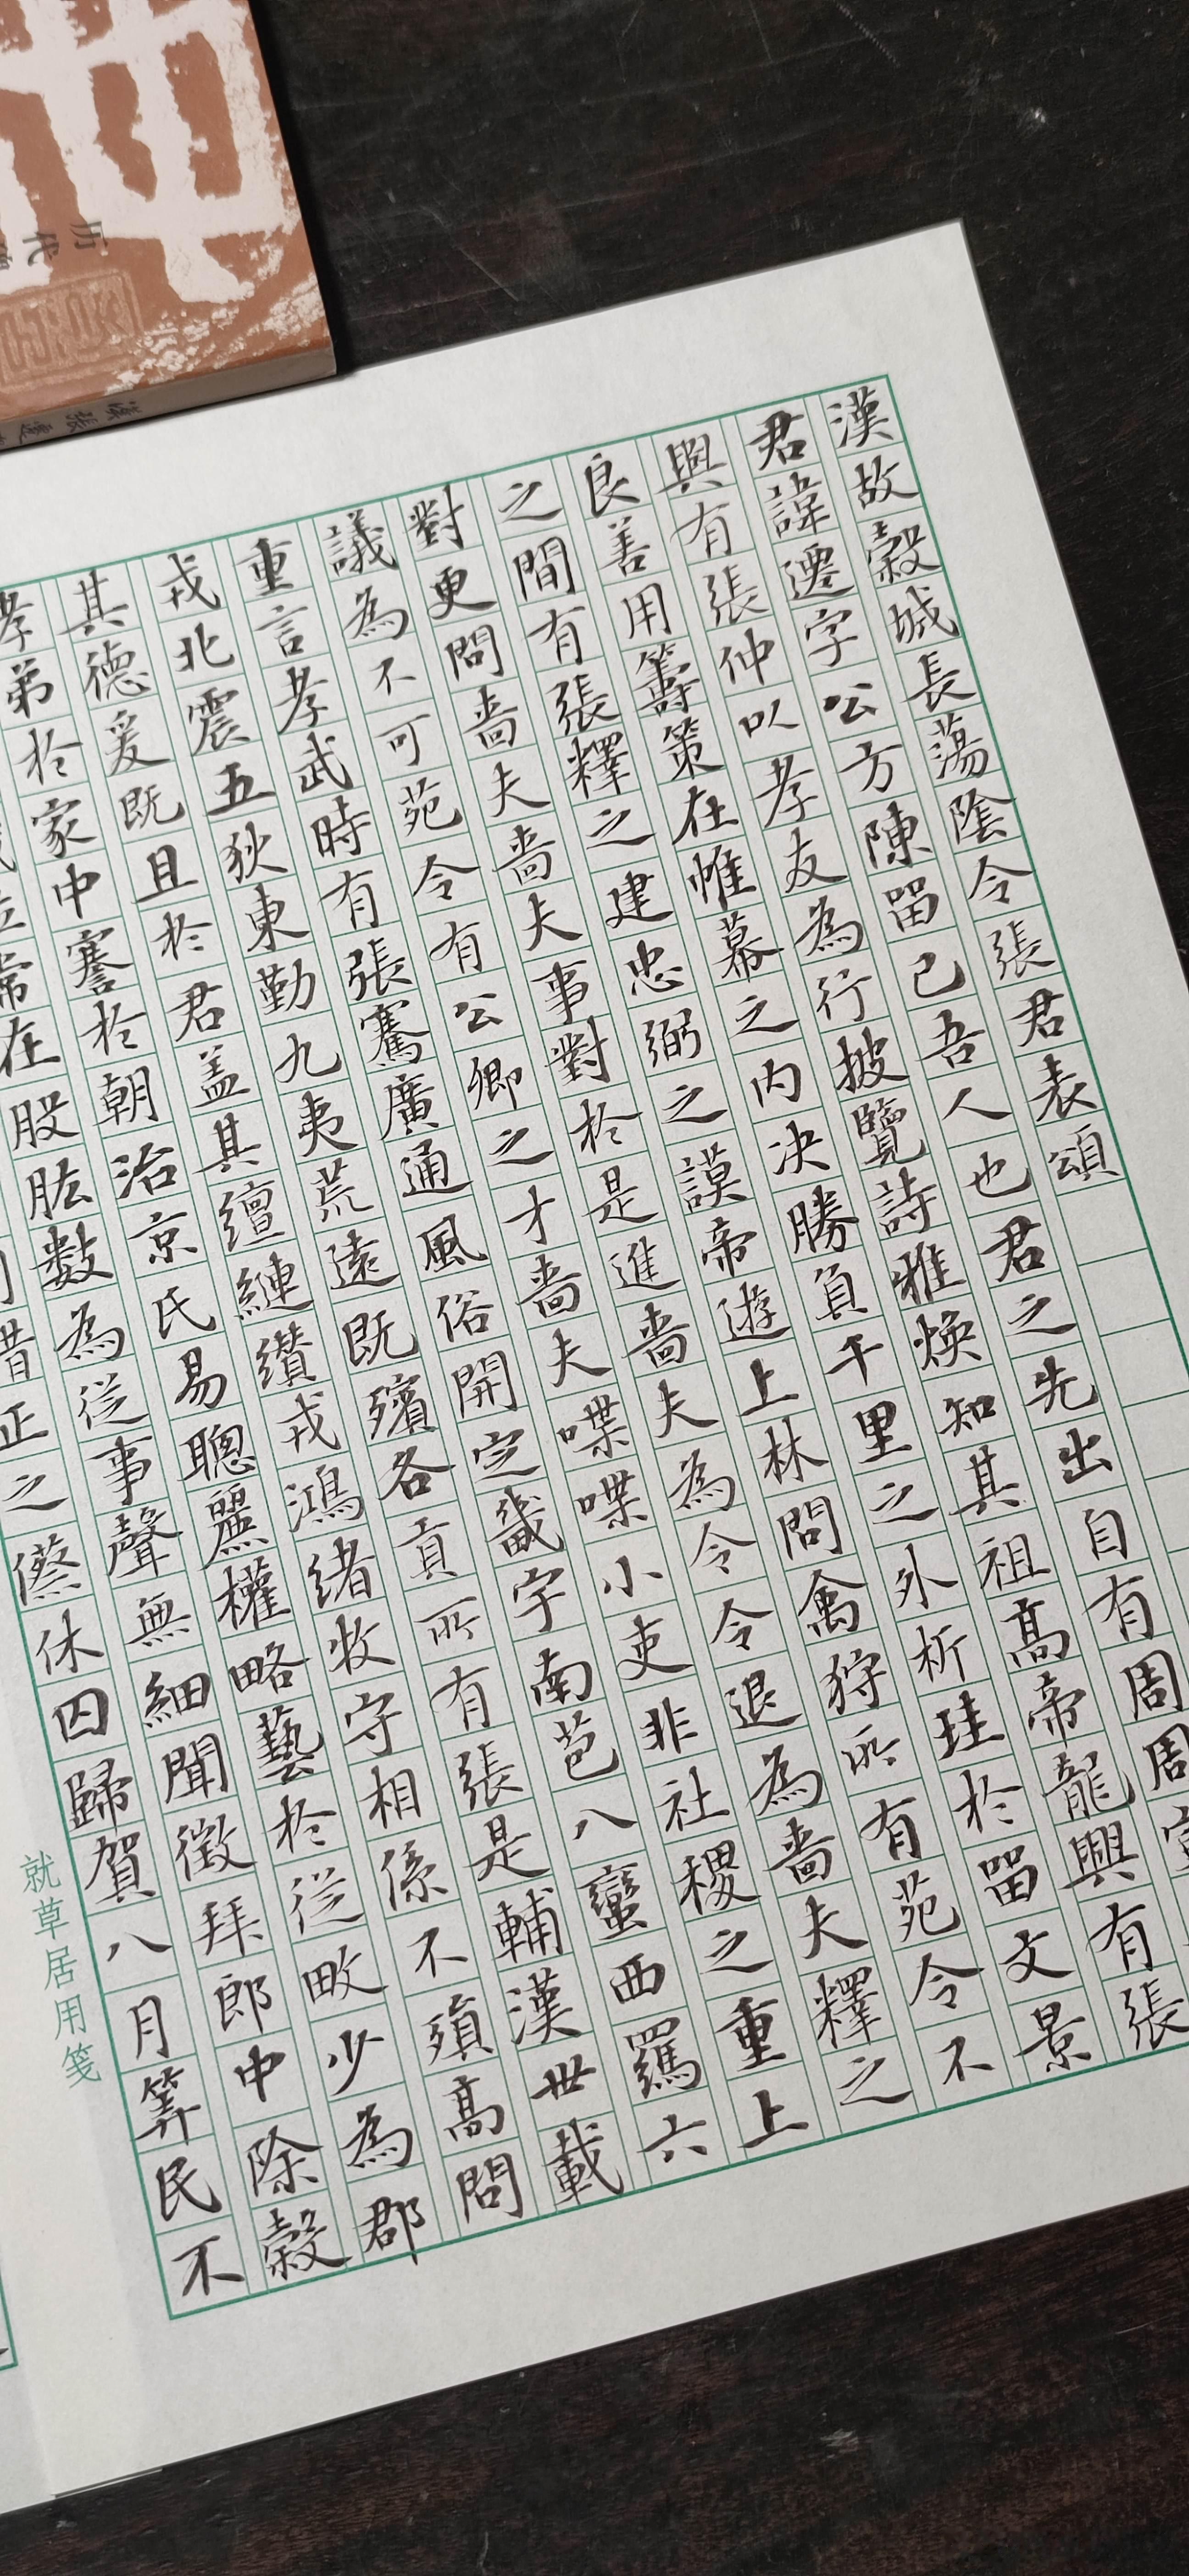 漢故穀城長蕩陰令張君表頌
君諱遷字公方陳留己吾人也君之先出自有周周
興有張仲以孝友為行披覽詩雅煥知其祖高帝龍興有張
良善用籌策在帷幕之内决勝負千里之外析珪於留文景
之間有張釋之建忠弼之謨帝遊上林問禽狩所有苑令不
對更問嗇夫嗇夫事對於是進嗇夫為令令退為嗇夫釋之
議為不可苑令有公卿之才嗇夫喋喋小吏非社稷之重上
重言孝武時有張騫廣通風俗開定畿宇南苞八蠻西羈六
戎北震五狄東勤九夷荒遠既殯各貢所有張是輔漢世載
其德爰既且於君盖其繵縺纘戎鴻緒牧守相係不殞高問
孝弟於家中謇於朝治京氏易聰麗權略藝於從畋少為郡
常在股肱数為從事聲無細聞徵拜郎中除穀
正之傺休囚歸賀八月筭民不
就草居用箋
历代
漢張遷